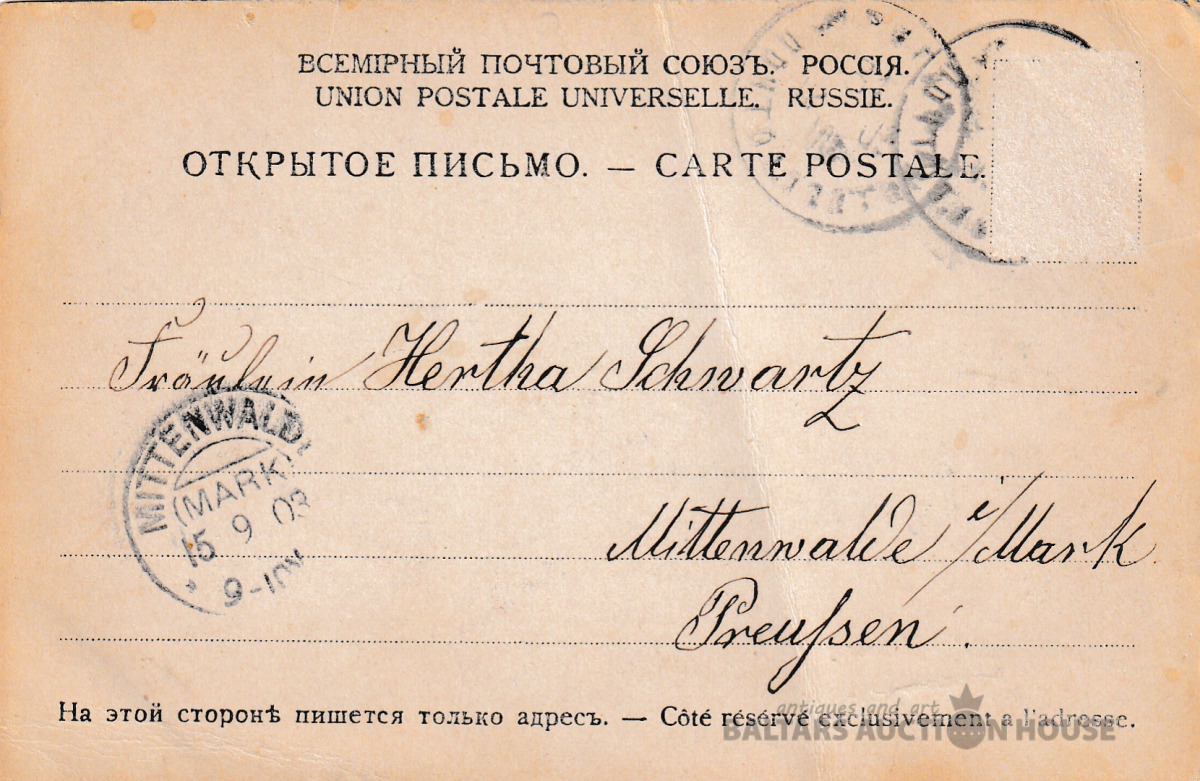 ВСЕМІРНЫЙ ПОЧТОВЫЙ СОЮЗЪ. РОССІЯ.
UNION POSTALE UNIVERSELLE. RUSSIE.
ОТКРЫТОЕ ПИСЬМО. — CARTE POSTALE.
Fräulein Hertha Schwartz
MITTENWALDE
(MARK)
15 9 03
9-10V
Mittenwalde i/Mark
Preußen.
На этой сторонѣ пишется только адресъ. — Côté résérvé exclusivement a l'adresse.
antiques and art
BALTARS AUCTION HOUSE